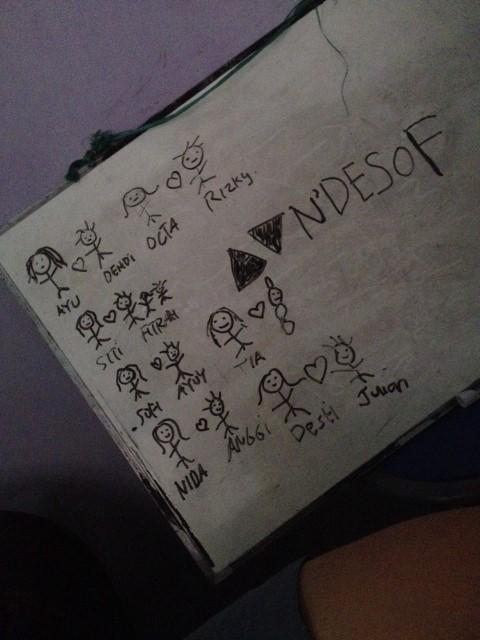 N'DESOF
OCTA
Rizky.
AYU
DENDI
SITI
FITRAH
TIA
SOFI
AYUY
NIDA
ANGGI
Desti
Juion